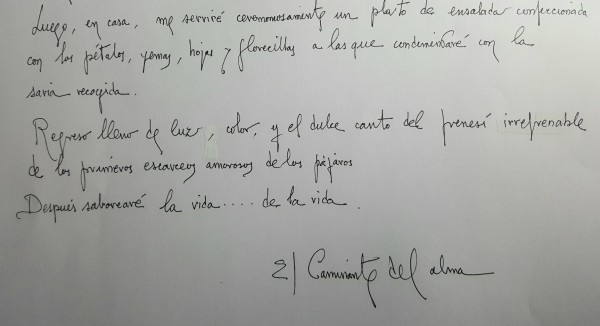 Luego, en casa, me serviré ceremoniosamente un plato de ensalada confeccionada
con los pétalos, yemas, hojas y florecillas a las que condimentaré con la
savia recogida.
Regreso lleno de luz, color, y el dulce canto del frenesí irrefrenable
de los primeros escarceos amorosos de los pájaros
Después saborearé la vida.... de la vida.
El Caminante del alma